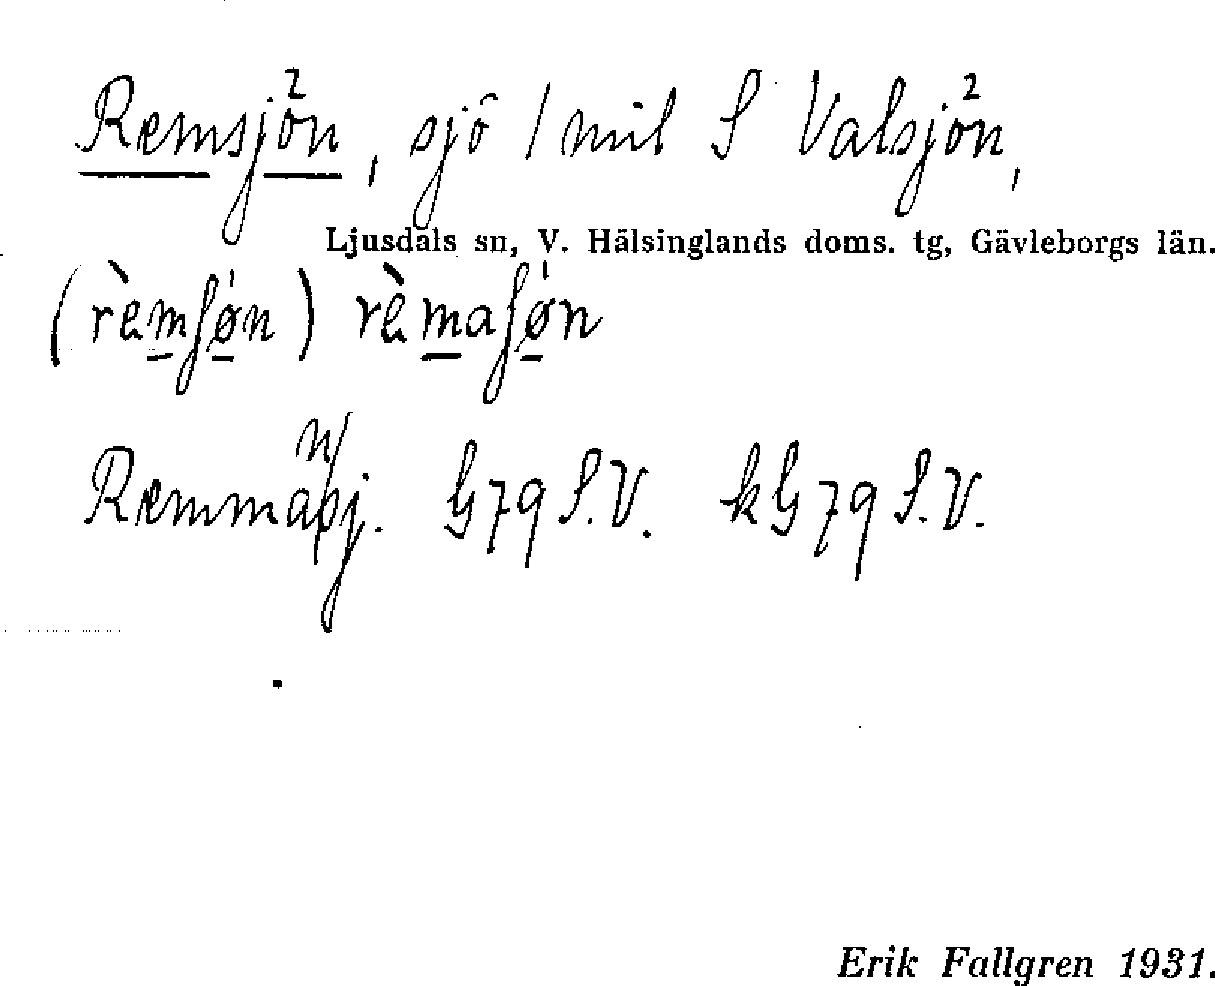 Remsjön², sjö 1 mil S Valsjön²,
Ljusdals sn, V. Hälsinglands doms. tg, Gävleborgs län.
(rèmʃøn) rèmaʃøn
Remmansj. G79 S.V. kG79 S.V.
Erik Fallgren 1931.